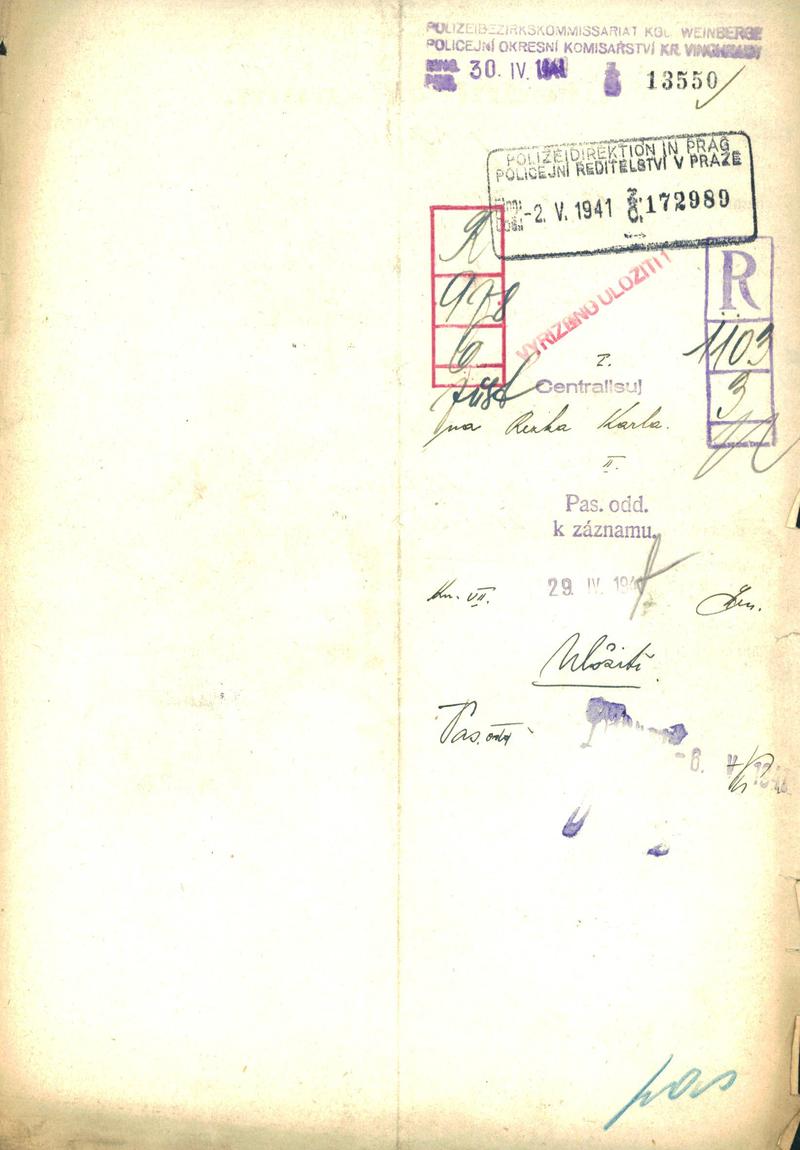 POLIZEIBEZIRKSKOMMISSARIAT KGL. WEINBERGE
POLICEJNÍ OKRESNÍ KOMISAŘSTVÍ KR. VINOHRADY
30. IV. 1941 13550
POLIZEIDIREKTION IN PRAG
POLICEJNÍ ŘEDITELSTVÍ V PRAZE
-2. V. 1941 172989
R
978
6
R
1103
3
VYŘÍZENO ULOŽITI!
I.
Centralisuj
na Karla.
II.
Pas. odd.
k záznamu.
29. IV. 194
Uložiti.
Pas. odd
-6.
pas